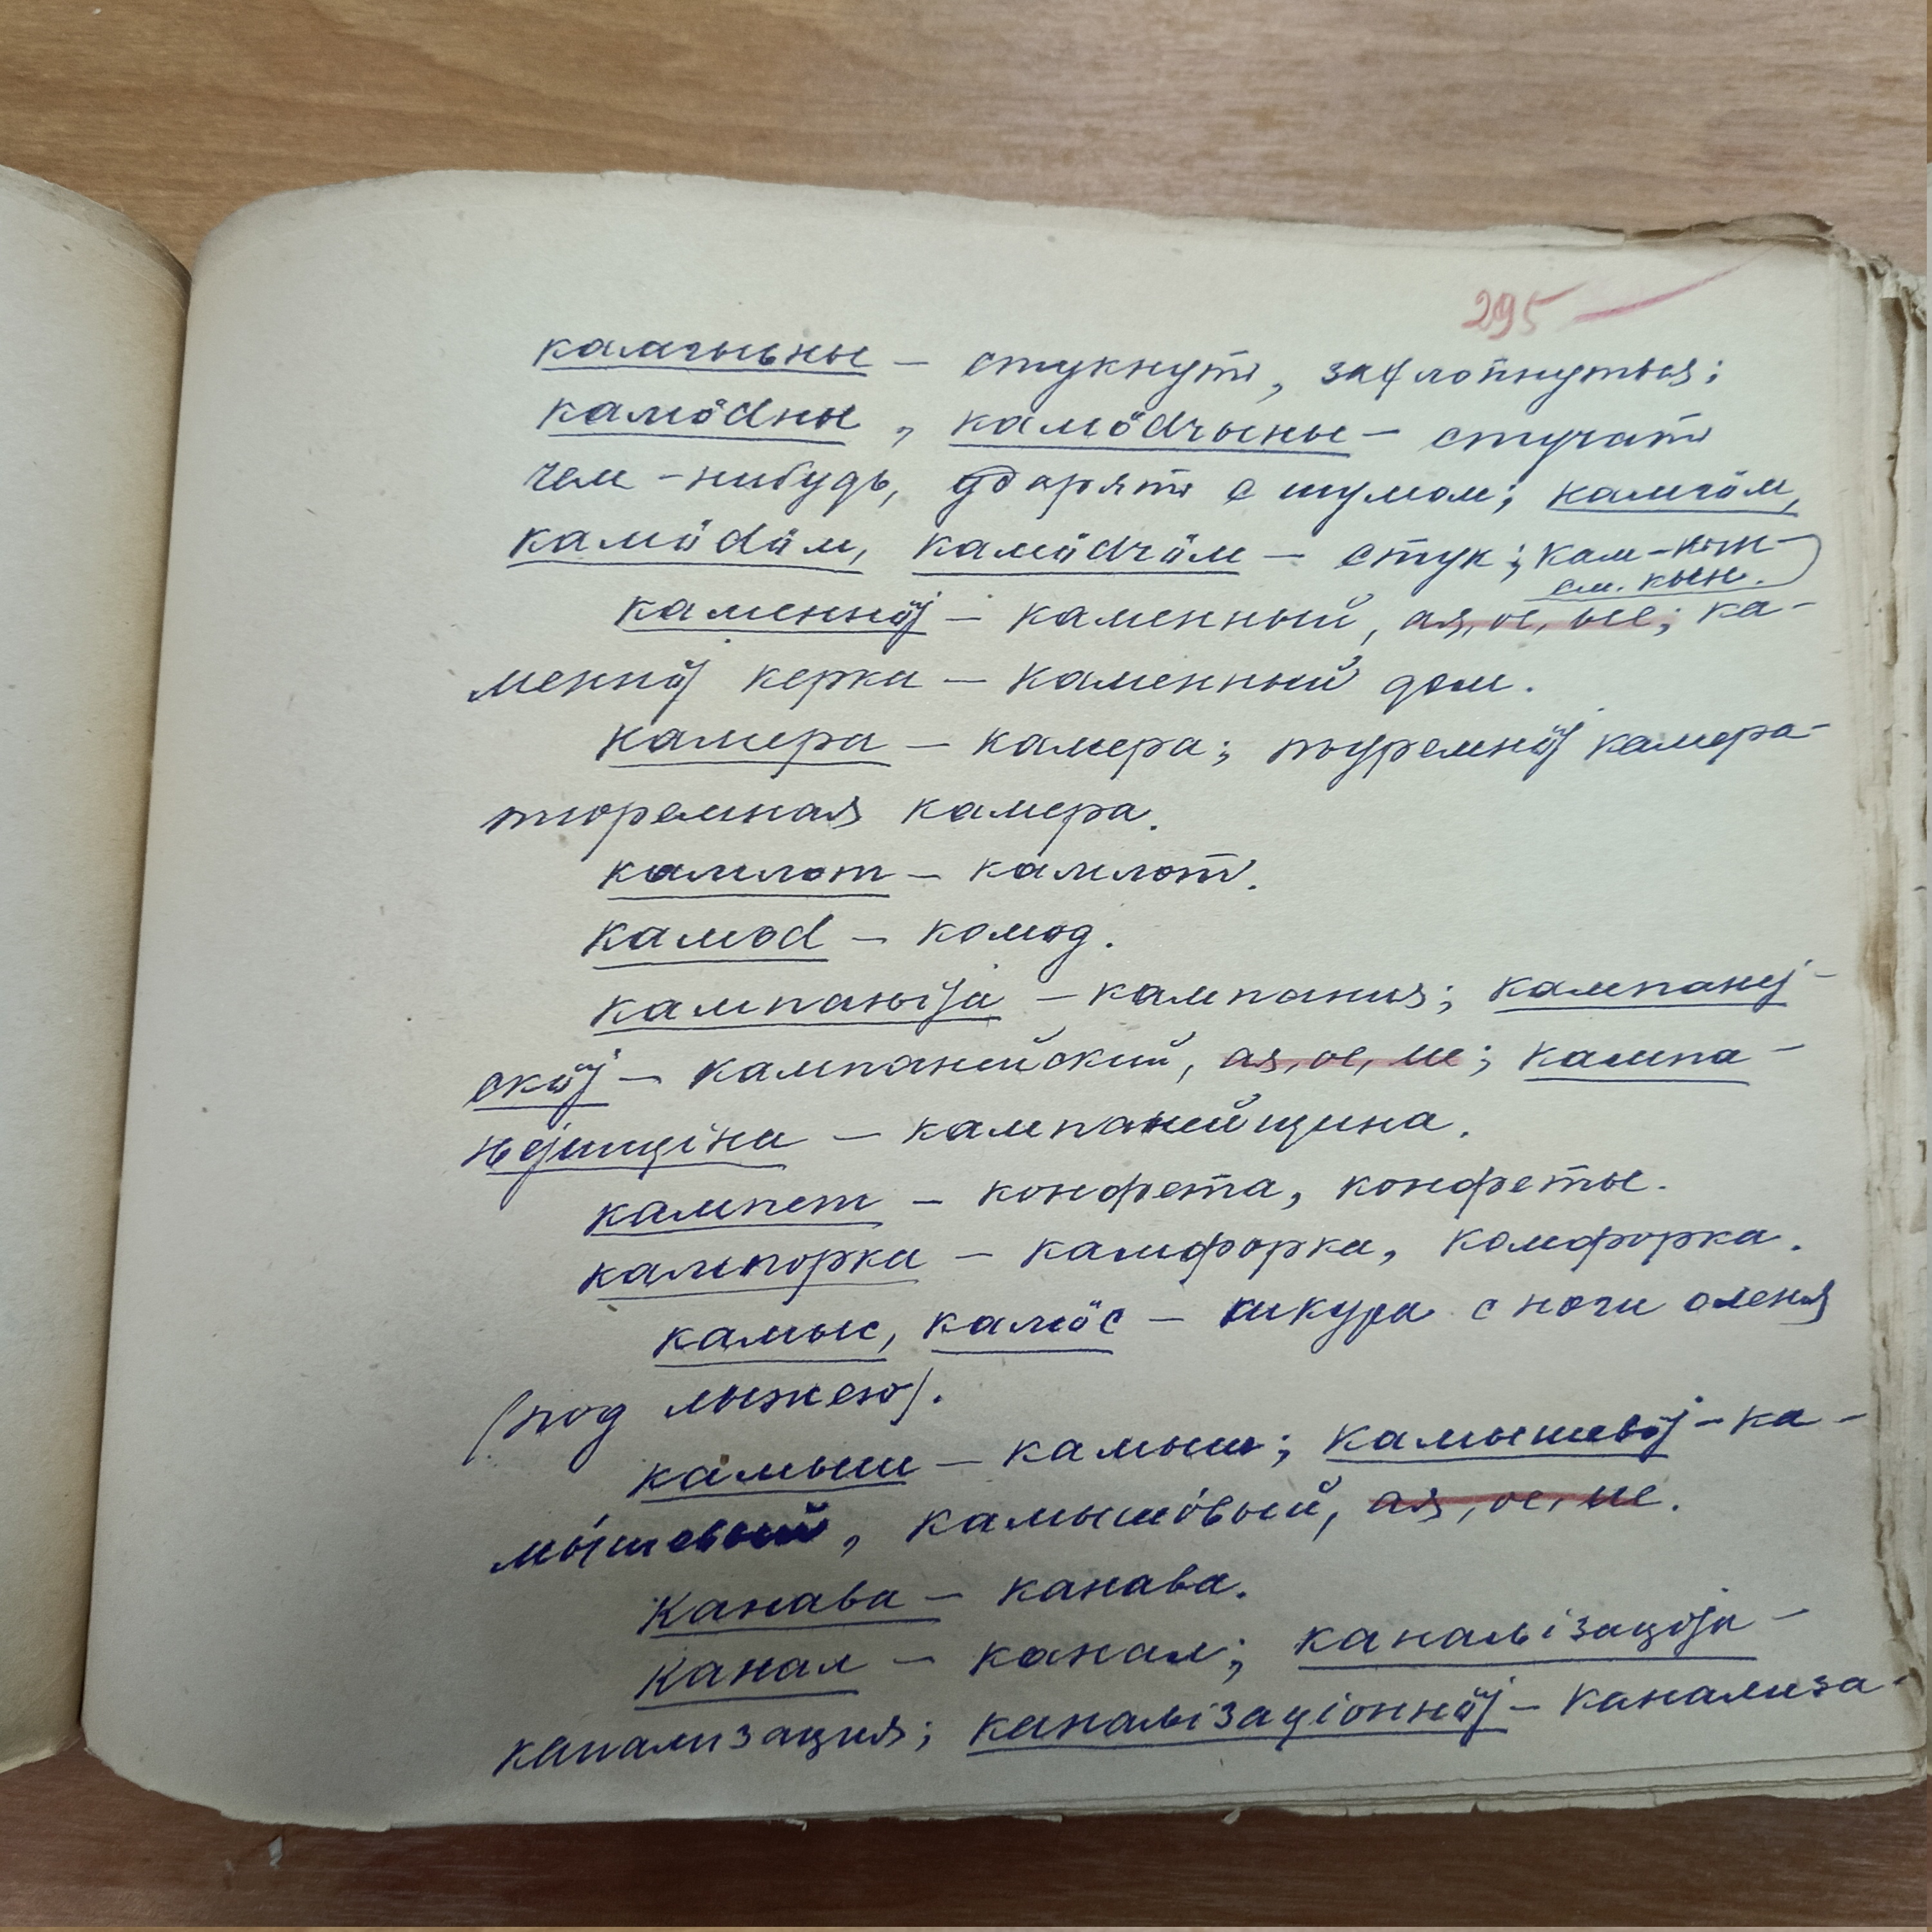 295
камгыԋны – стукнуть, захлопнуться;
камӧdны, камӧdчыны – стучать
чем-нибудь, ударять с шумом; камгӧм,
камӧdӧм, камӧdчӧм – стук; кам-
см. кыԋ.
каменнӧj – каменный, ая, ое, ые; ка-
меннӧj керка – каменный дом.
камера – камера; тыуремнӧj камера –
тюремная камера.
камлот – камлот.
камоd – комод.
кампаԋıjа – кампания; кампаԋеj-
скӧj – кампанейский, ая, ое, ие; кампа-
ԋеjшщıна – кампанейщина.
кампет – конфета, конфеты.
кампорка – камфорка, комфорка.
камыс, камӧс – шкура с ноги оленя
/под лыжею/.
камыш – камыш; камышевӧj – ка-
мы́шевый, камышо́вый, ая, ое, ые.
Канава – канава.
Канал – канал; каналıзацıjа –
канализация; каналıзацıоннӧj – канализа-